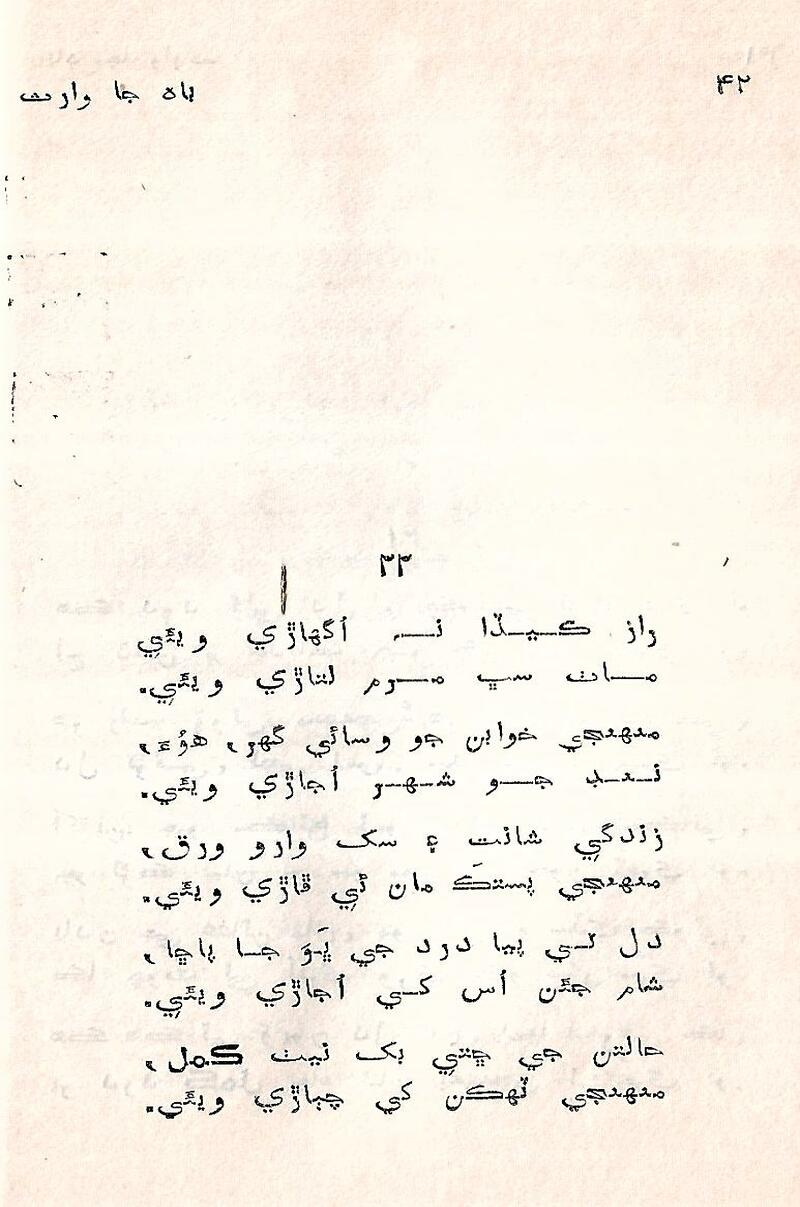 ۴۲
باه جا وارث
۳۳
راز ڪيڏا نہ اُگهاڙي ويئي
مات سڀ مرم لتاڙي ويئي.
منهنجي خوابن جو وسائي گهر، هوُءَ،
ننڊ جو شهر اُجاڙي ويئي.
زندگي شانت ۽ سک وارو ورق،
منهنجي پستڪَ مان ئي ڦاڙي ويئي.
دل تي پيا درد جي ڀَوَ جا پاڇا،
شام جئن اُس کي اُجاڙي ويئي.
حالتن جي چٽي بک نيٺ ڪمل،
منهنجي ٽهڪن کي چٻاڙي ويئي.